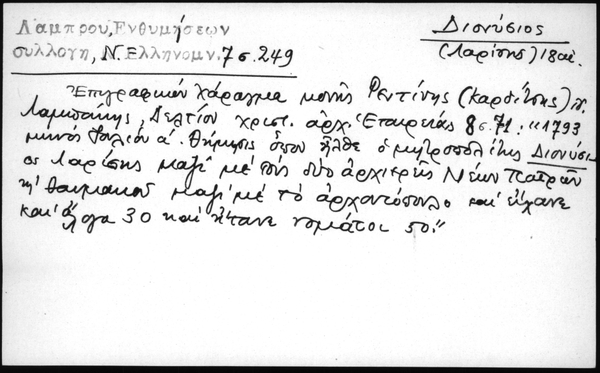 Λάμπρου, Ενθυμήσεων
συλλογη, Ν. Ελληνομν. 7 σ. 249
Διονύσιος
(Λαρίσης) 18 αἰ.
Ἐπιγραφικόν χάραγμα μονῆς Ρεντίνης (Καρδίτσης)
Λαμπάκης, Δελτίον χριστ. ἀρχ. Ἑταιρείας 8 σ. 71: "1793
μηνός Ἰουλίου α΄. Θύμησις ὅπου ἦλθε ὁ μητροπολίτης Διονύσι
ος Λαρίσης μαζί μέ τούς δύο ἀρχιερῆς Νέων Πατρῶν
κή Θαυμακοῦ μαζί μέ τό ἀρχοντόπουλο καί εἴχανε
καί ἄλογα 30 καί ἤτανε νομάτοι 50."